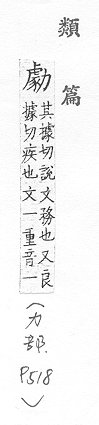 類篇
劇
其據切說文務也又良
據切疾也文一重音一
(力部.
P518)